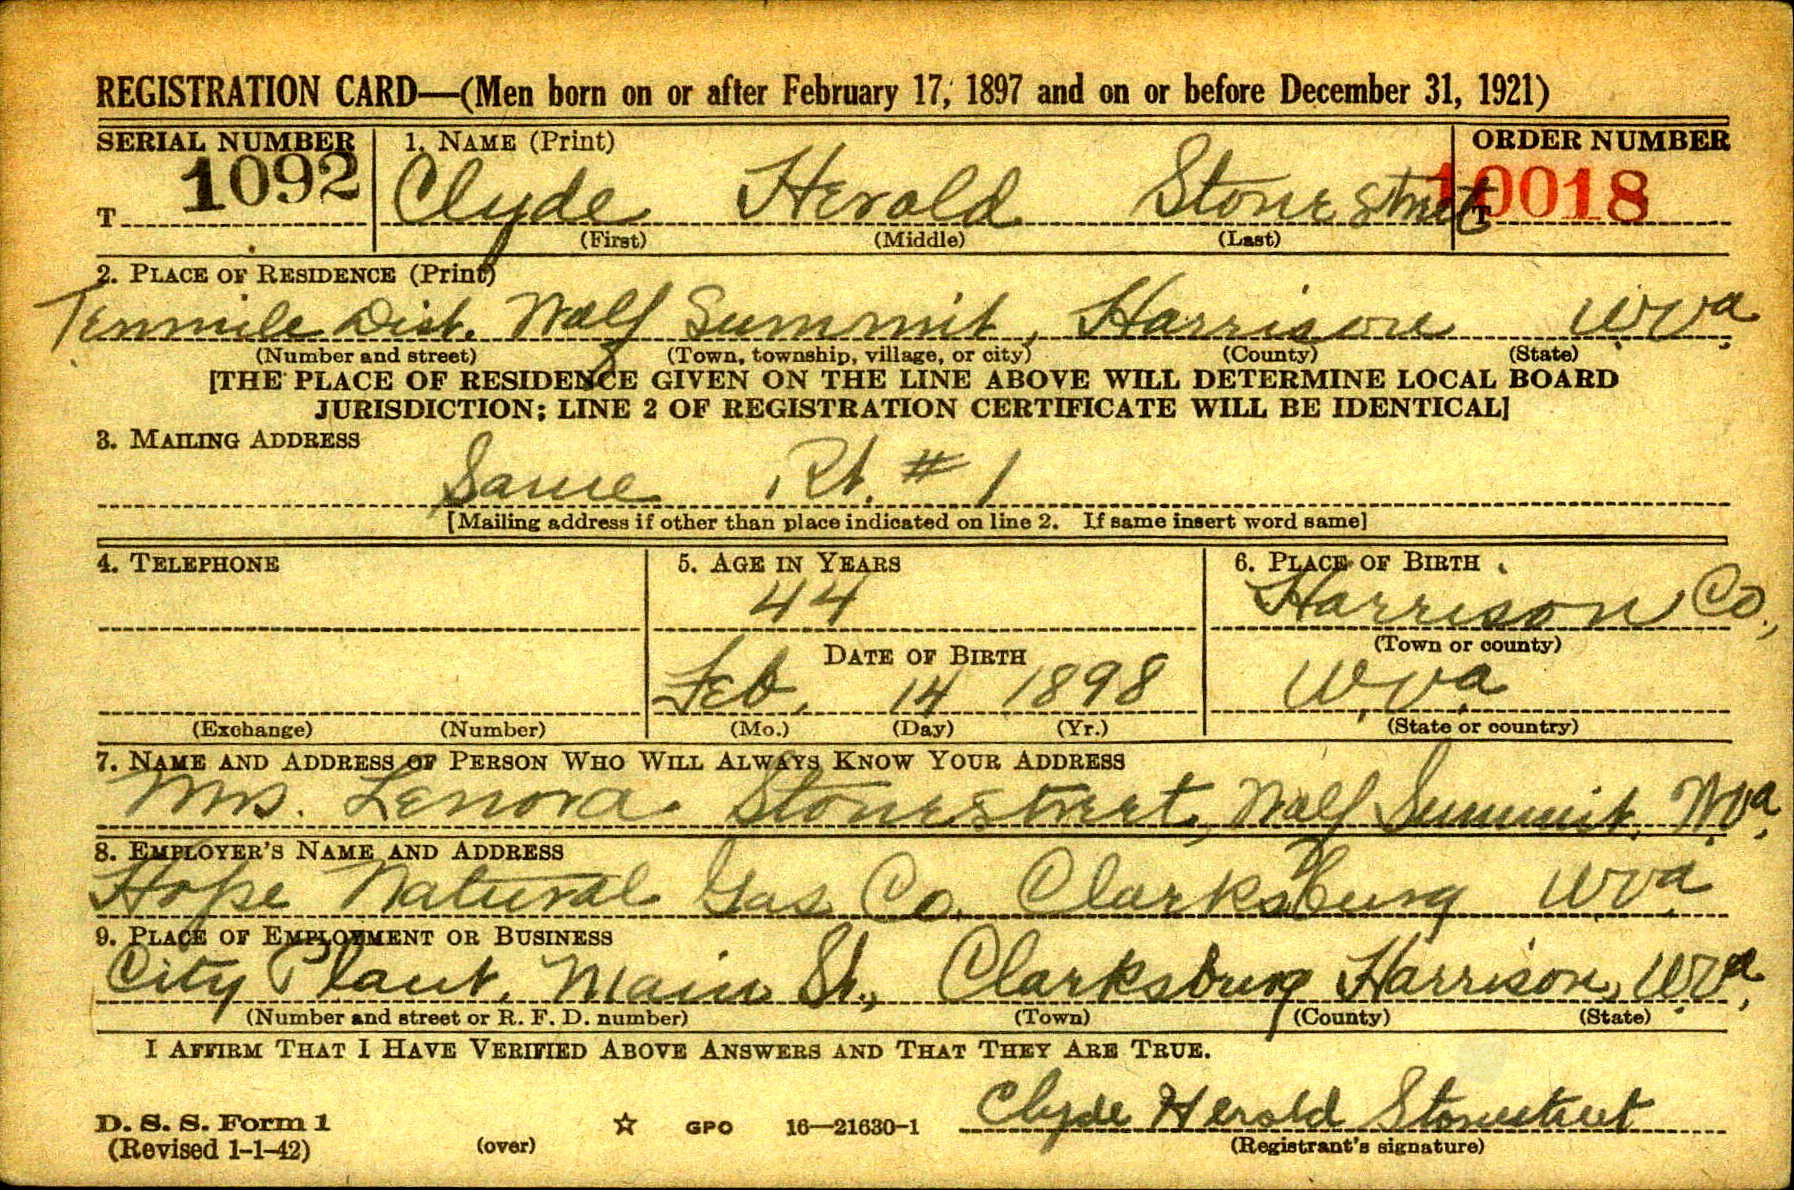 REGISTRATION CARD—(Men born on or after February 17, 1897 and on or before December 31, 1921)
SERIAL NUMBER 1. NAME (Print) ORDER NUMBER
T 1092 Clyde Herold Stonestreet T 10018
(First) (Middle) (Last)
2. PLACE OF RESIDENCE (Print)
Tenmile Dist. Wolf Summit, Harrison W.Va.
(Number and street) (Town, township, village, or city) (County) (State)
[THE PLACE OF RESIDENCE GIVEN ON THE LINE ABOVE WILL DETERMINE LOCAL BOARD
JURISDICTION; LINE 2 OF REGISTRATION CERTIFICATE WILL BE IDENTICAL]
3. MAILING ADDRESS
Same Rt. # 1
[Mailing address if other than place indicated on line 2. If same insert word same]
4. TELEPHONE 5. AGE IN YEARS 6. PLACE OF BIRTH
44 Harrison Co.,
(Town or county)
DATE OF BIRTH
Feb. 14 1898 W.Va.
(Exchange) (Number) (Mo.) (Day) (Yr.) (State or country)
7. NAME AND ADDRESS OF PERSON WHO WILL ALWAYS KNOW YOUR ADDRESS
Mrs. Lenora Stonestreet, Wolf Summit, W.Va.
8. EMPLOYER'S NAME AND ADDRESS
Hope Natural Gas Co. Clarksburg W.Va.
9. PLACE OF EMPLOYMENT OR BUSINESS
City Plant, Main St., Clarksburg Harrison, W.Va.
(Number and street or R. F. D. number) (Town) (County) (State)
I AFFIRM THAT I HAVE VERIFIED ABOVE ANSWERS AND THAT THEY ARE TRUE.
Clyde Herold Stonestreet
D. S. S. Form 1
(Revised 1-1-42) (over) ☆ GPO 16—21630-1 (Registrant's signature)